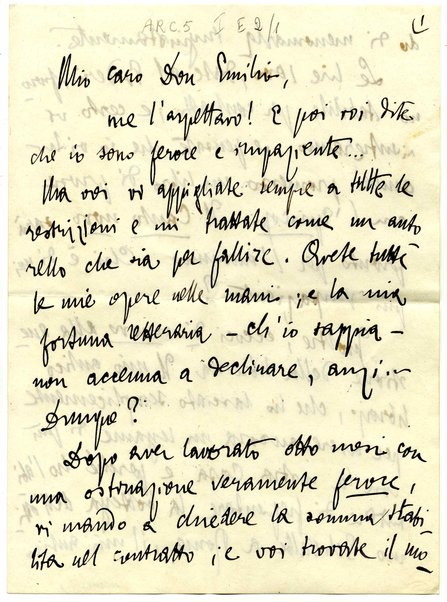 ARC.5 I E 2/1
1
Mio caro Don Emilio,
me l'aspettavo! E poi voi dite
che io sono feroce e impaziente...
Ma voi vi appigliate sempre a tutte le
restrizioni e mi trattate come un auto
rello che sia per fallire. Avete tutte
le mie opere nelle mani; e la mia
fortuna letteraria – ch'io sappia –
non accenna a declinare, anzi...
Dunque?
Dopo aver lavorato otto mesi con
una ostinazione veramente feroce,
vi mando a chiedere la somma stabi
lita nel contratto; e voi trovate il mo